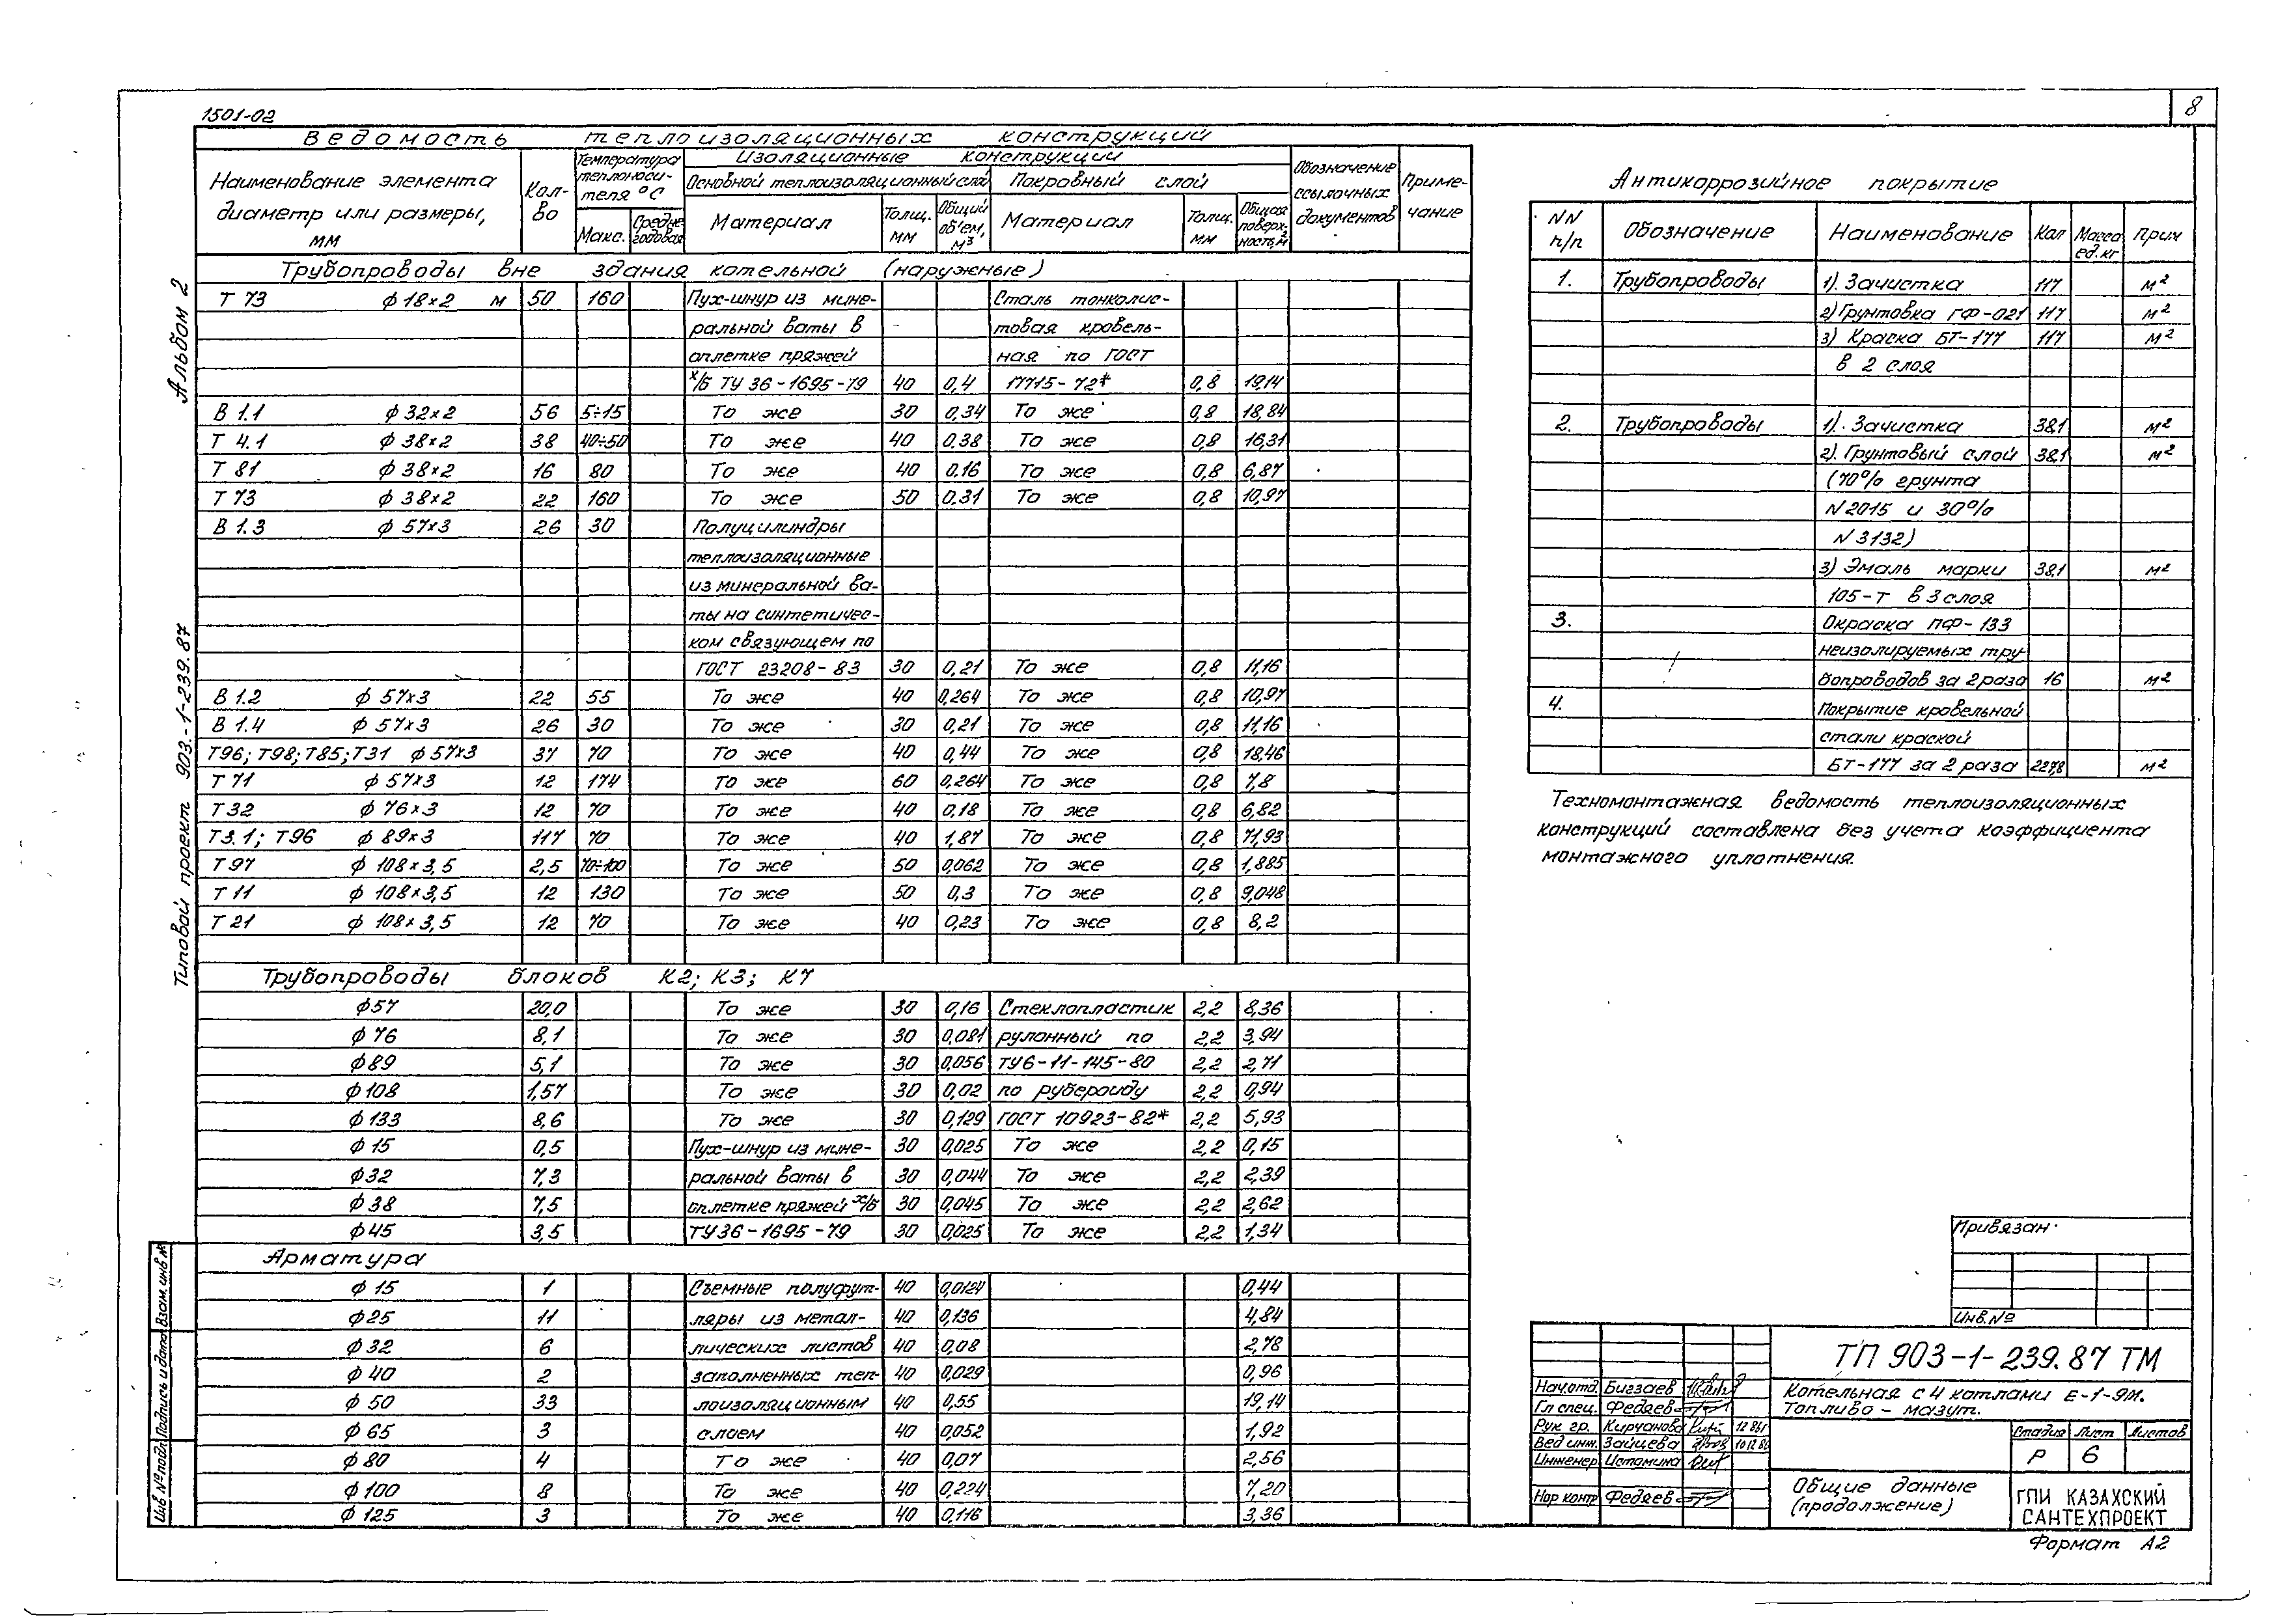 8
1501-02
Ведомость теплоизоляционных конструкций
Наименование элемента диаметр или размеры, мм
Кол-во
Температура теплоноси-теля °С
Макс. Средне-годовая
Изоляционные конструкции
Основной теплоизоляционный слой Покровный слой
Материал Толщ. мм Общий об'ем, м3 Материал Толщ. мм Общая поверх-ность, м2
Обозначение ссылочных документов
Приме-чание
Трубопроводы вне здания котельной (наружные)
Т 73 ф 18×2 м 50 160 Пух-шнур из мине- Сталь тонколис-
ральной ваты в - товая кровель-
оплетке пряжей ная по ГОСТ
х/б ТУ 36-1695-79 40 0,4 17715-72* 0,8 19,14
В 1.1 ф 32×2 56 5÷15 То же 30 0,34 То же 0,8 18,84
Т 4.1 ф 38×2 38 40÷50 То же 40 0,38 То же 0,8 16,31
Т 81 ф 38×2 16 80 То же 40 0,16 То же 0,8 6,87
Т 73 ф 38×2 22 160 То же 50 0,31 То же 0,8 10,97
В 1.3 ф 57×3 26 30 Полуцилиндры
теплоизоляционные
из минеральной ва-
ты на синтетичес-
ком связующем по
ГОСТ 23208-83 30 0,21 То же 0,8 11,16
В 1.2 ф 57×3 22 55 То же 40 0,264 То же 0,8 10,97
В 1.4 ф 57×3 26 30 То же 30 0,21 То же 0,8 11,16
Т96; Т98; Т85; Т31 ф 57×3 37 70 То же 40 0,44 То же 0,8 18,46
Т 71 ф 57×3 12 174 То же 60 0,264 То же 0,8 7,8
Т 32 ф 76×3 12 70 То же 40 0,18 То же 0,8 6,82
Т3.1; Т96 ф 89×3 117 70 То же 40 1,87 То же 0,8 71,93
Т 97 ф 108×3,5 2,5 70÷100 То же 50 0,062 То же 0,8 1,885
Т 11 ф 108×3,5 12 130 То же 50 0,3 То же 0,8 9,048
Т 21 ф 108×3,5 12 70 То же 40 0,23 То же 0,8 8,2
Трубопроводы блоков К2; К3; К7
ф57 20,0 То же 30 0,16 Стеклопластик 2,2 8,36
ф 76 8,1 То же 30 0,081 рулонный по 2,2 3,94
ф89 5,1 То же 30 0,056 ТУ6-11-145-80 2,2 2,71
ф108 1,57 То же 30 0,02 по рубероиду 2,2 0,94
ф 133 8,6 То же 30 0,129 ГОСТ 10923-82* 2,2 5,93
ф 15 0,5 Пух-шнур из мине- 30 0,025 То же 2,2 0,15
ф32 7,3 ральной ваты в 30 0,044 То же 2,2 2,39
ф 38 7,5 оплетке пряжей х/б 30 0,045 То же 2,2 2,62
ф45 3,5 ТУ36-1695-79 30 0,025 То же 2,2 1,34
Арматура
ф 15 1 Съемные полуфут- 40 0,0124 0,44
ф25 11 ляры из метал- 40 0,136 4,84
ф32 6 лических листов 40 0,08 2,78
ф 40 2 заполненных теп- 40 0,029 0,96
ф 50 33 лоизоляционным 40 0,55 19,14
ф 65 3 слоем 40 0,052 1,92
ф 80 4 То же 40 0,07 2,56
ф 100 8 То же 40 0,224 7,20
ф 125 3 То же 40 0,116 3,36
Антикоррозийное покрытие
NN п/п Обозначение Наименование Кол Масса ед.кг Прим
1. Трубопроводы 1). Зачистка 117 м2
2) Грунтовка ГФ-021 117 м2
3) Краска БТ-177 117 м2
в 2 слоя
2. Трубопроводы 1). Зачистка 38,1 м2
2). Грунтовый слой 38,1 м2
(70% грунта
N2015 и 30%
N 3132)
3) Эмаль марки 38,1 м2
105-Т в 3 слоя
3. Окраска ПФ-133
неизолируемых тру-
бопроводов за 2 раза 16 м2
4. Покрытие кровельной
стали краской
БТ-177 за 2 раза 227,8 м2
Техномонтажная ведомость теплоизоляционных
конструкций составлена без учета коэффициента
монтажного уплотнения.
Привязан
Инв.№
ТП 903-1-239.87 ТМ
Котельная с 4 котлами Е-1-9М.
Топливо - мазут.
Стадия Лист Листов
Р 6
Нач.отд. Бигзаев
Гл спец. Федяев
Рук гр. Кирчанова 12 86г
Вед инж. Зайцева 10 12 86
Инженер Истомина
Нор контр Федяев
Общие данные
(продолжение)
ГПИ КАЗАХСКИЙ
САНТЕХПРОЕКТ
Формат А2
Альбом 2
Типовой проект 903.-1-239.87
Взам. инв №
Подпись и дата
Инв № подл